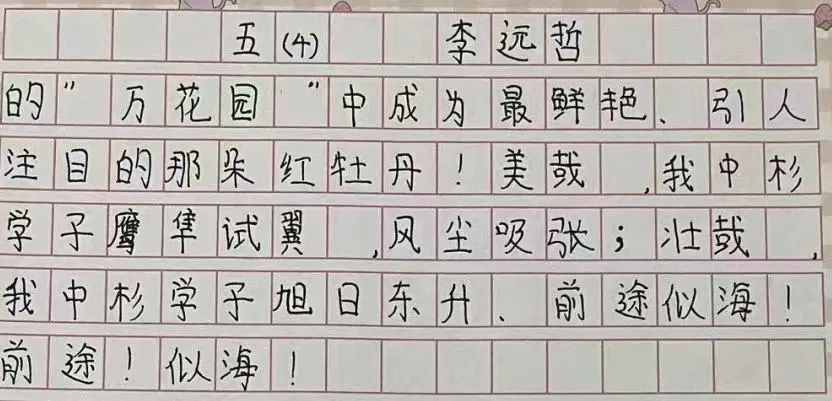 五(4) 李远哲
的"万花园"中成为最鲜艳、引人
注目的那朵红牡丹！美哉,我中杉
学子鹰隼试翼,风尘吸张；壮哉,
我中杉学子旭日东升、前途似海！
前途！似海！